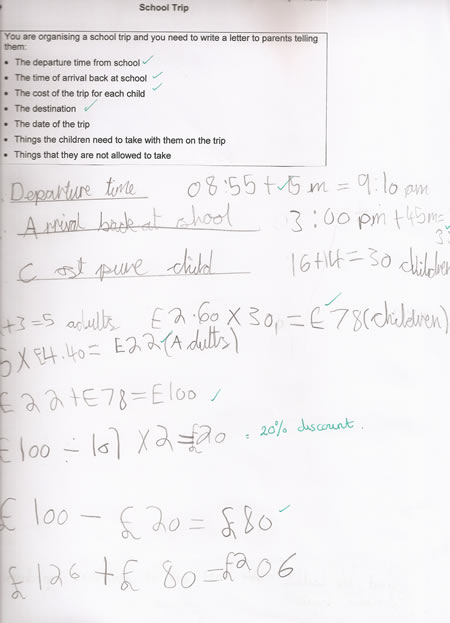 School Trip
You are organising a school trip and you need to write a letter to parents telling
them:
• The departure time from school ✓
• The time of arrival back at school ✓
• The cost of the trip for each child ✓
• The destination ✓
• The date of the trip
• Things the children need to take with them on the trip
• Things that they are not allowed to take
Departure time 08:55 + 15 m = 9:10 pm
Arrival back at shool 3:00 pm + 45m =
3:
Cost pure child 16+14 = 30 children
+3 = 5 adults £2.60 X 30p = £78 (children)
5 X £4.40 = £22 (Adults)
£22 + £78 = £100 ✓
£100 ÷ 10) X 2 = £20 = 20% discount.
£100 – £20 = £80 ✓
£126 + £80 = £206